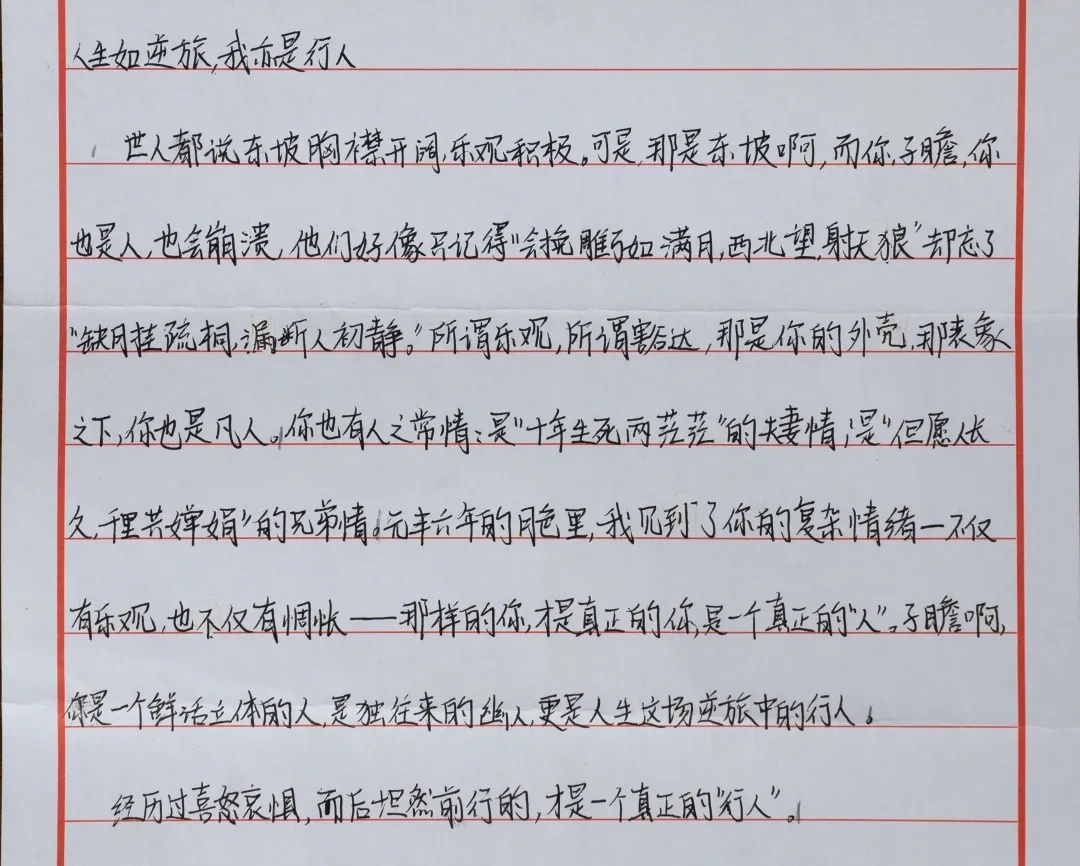 人生如逆旅,我亦是行人
世人都说东坡胸襟开阔,乐观积极。可是,那是东坡啊,而你,子瞻,你
也是人,也会崩溃,他们好像只记得"会挽雕弓如满月,西北望,射天狼"却忘了
"缺月挂疏桐,漏断人初静。"所谓乐观,所谓豁达,那是你的外壳,那表象
之下,你也是凡人。你也有人之常情:是"十年生死两茫茫"的夫妻情;是"但愿人长
久,千里共婵娟"的兄弟情。元丰六年的月色里,我见到了你的复杂情绪—不仅
有乐观,也不仅有惆怅——那样的你,才是真正的你,是一个真正的"人"。子瞻啊,
你是一个鲜活立体的人,是独往来的幽人,更是人生这场逆旅中的行人。
经历过喜怒哀惧,而后坦然前行的,才是一个真正的"行人"。